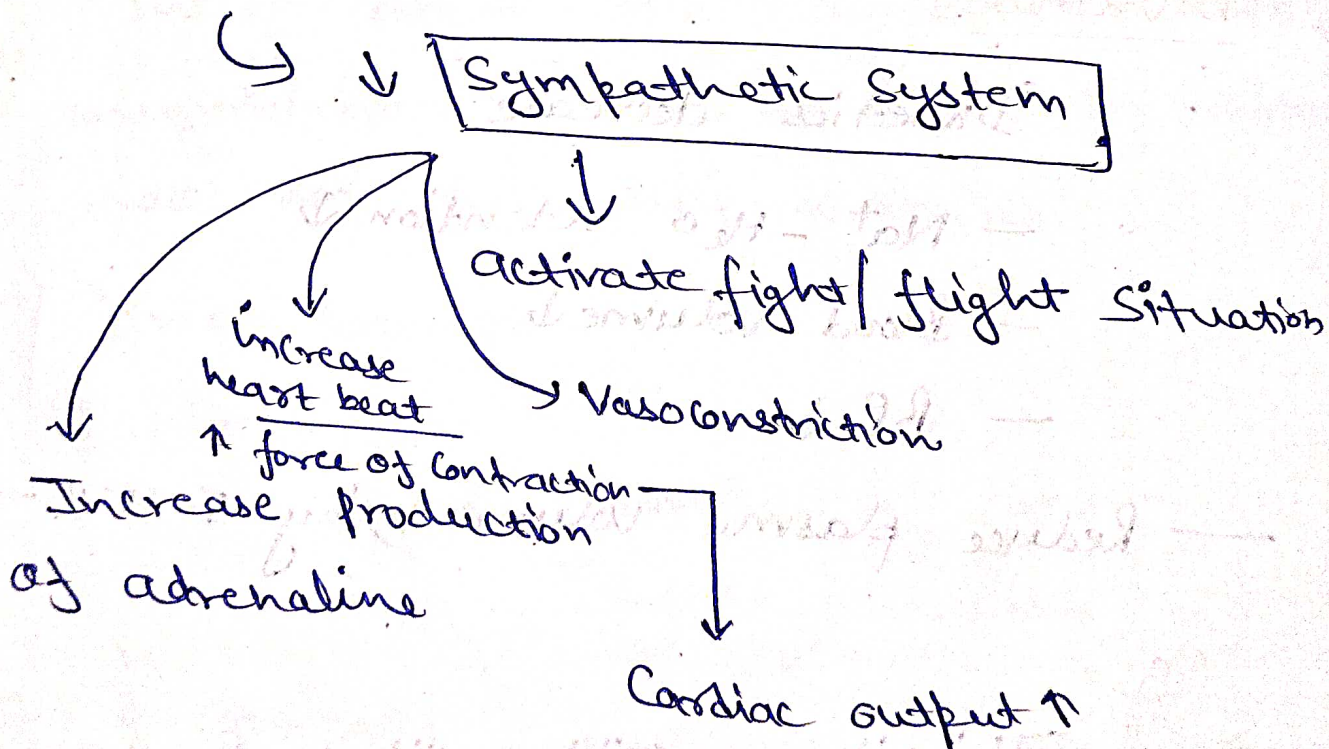 ↓ Sympathetic System
activate fight/flight situation
increase
heart beat
↑ force of contraction
Vasoconstriction
Increase production
of adrenaline
Cardiac output ↑